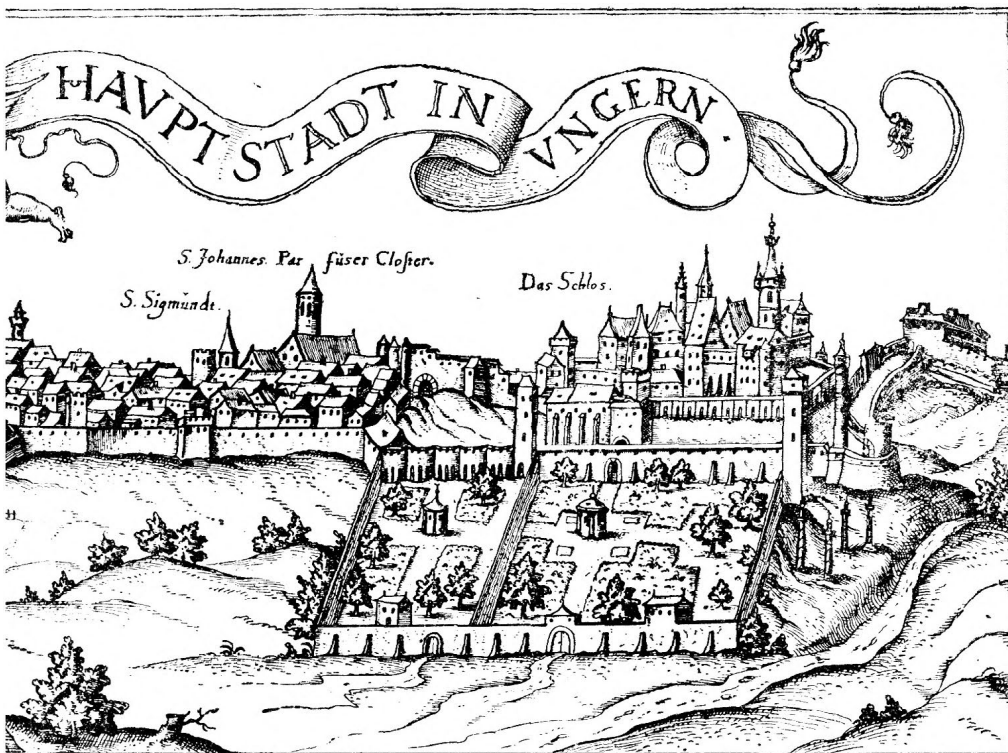 HAVPT STADT IN VNGERN.
S. Johannes. Par füser Closter.
S. Sigmŭndt.
Das Schlos.